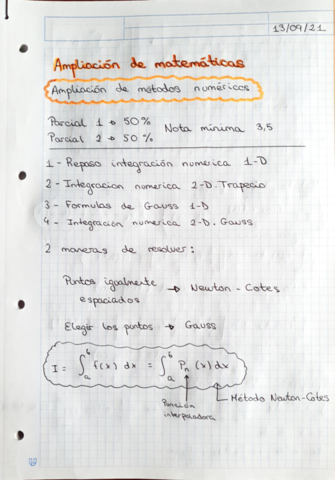 13/09/21
Ampliación de matemáticas
Ampliación de métodos numéricos
Parcial 1 → 50%
Parcial 2 → 50%
Nota mínima 3,5
1 - Repaso integración numerica 1-D
2 - Integracion numerica 2-D. Trapecio
3 - Formulas de Gauss 1-D
4 - Integración numerica 2-D. Gauss
2 maneras de resolver:
Puntos igualmente espaciados → Newton-Cotes
Elegir los puntos → Gauss
I = ∫_a^b f(x) dx = ∫_a^b P_n(x) dx
Función interpoladora
Método Newton-Cotes